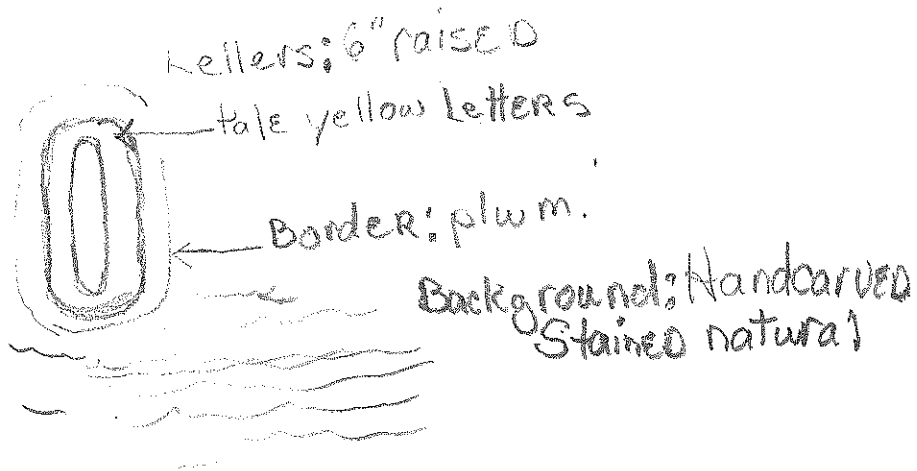 Letters: 6" raised
Pale yellow Letters
Border: plum.
Background: Handcarved
Stained natural